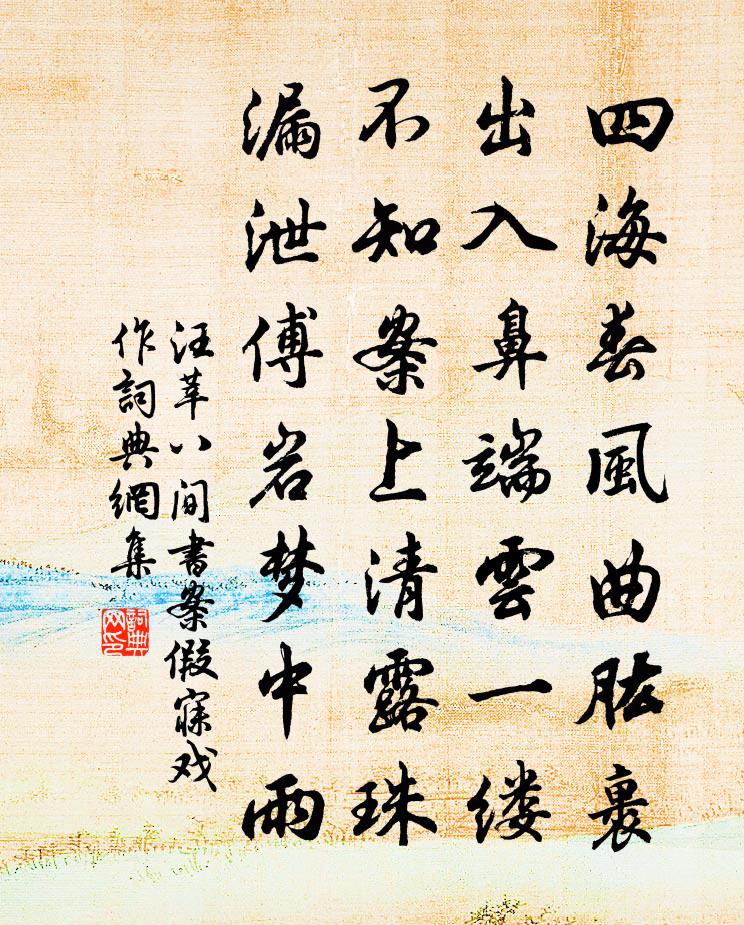 四海春風曲肱裏
出入鼻端雲一缕
不知案上清露珠
漏泄傅岩梦中雨
汪莘八间書案假寐戏
作詞典網集
詞典网印